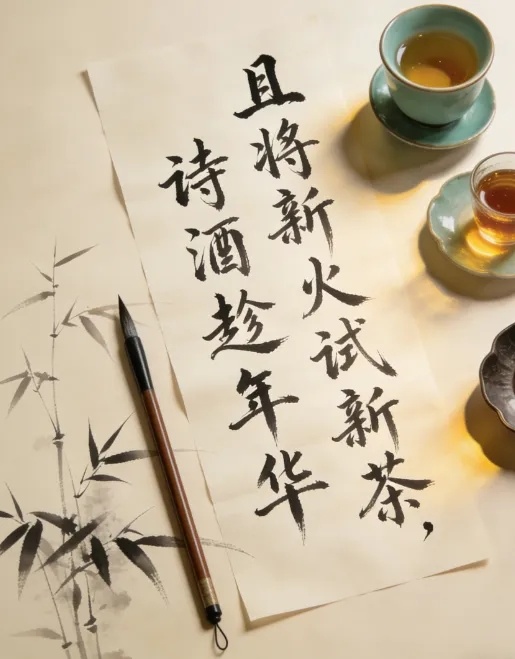 且将新火试新茶，
诗酒趁年华